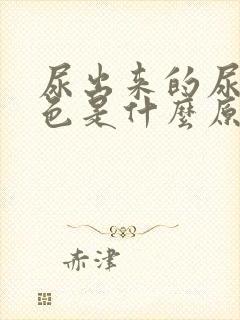 尿出来的尿
色是什麼原
赤津